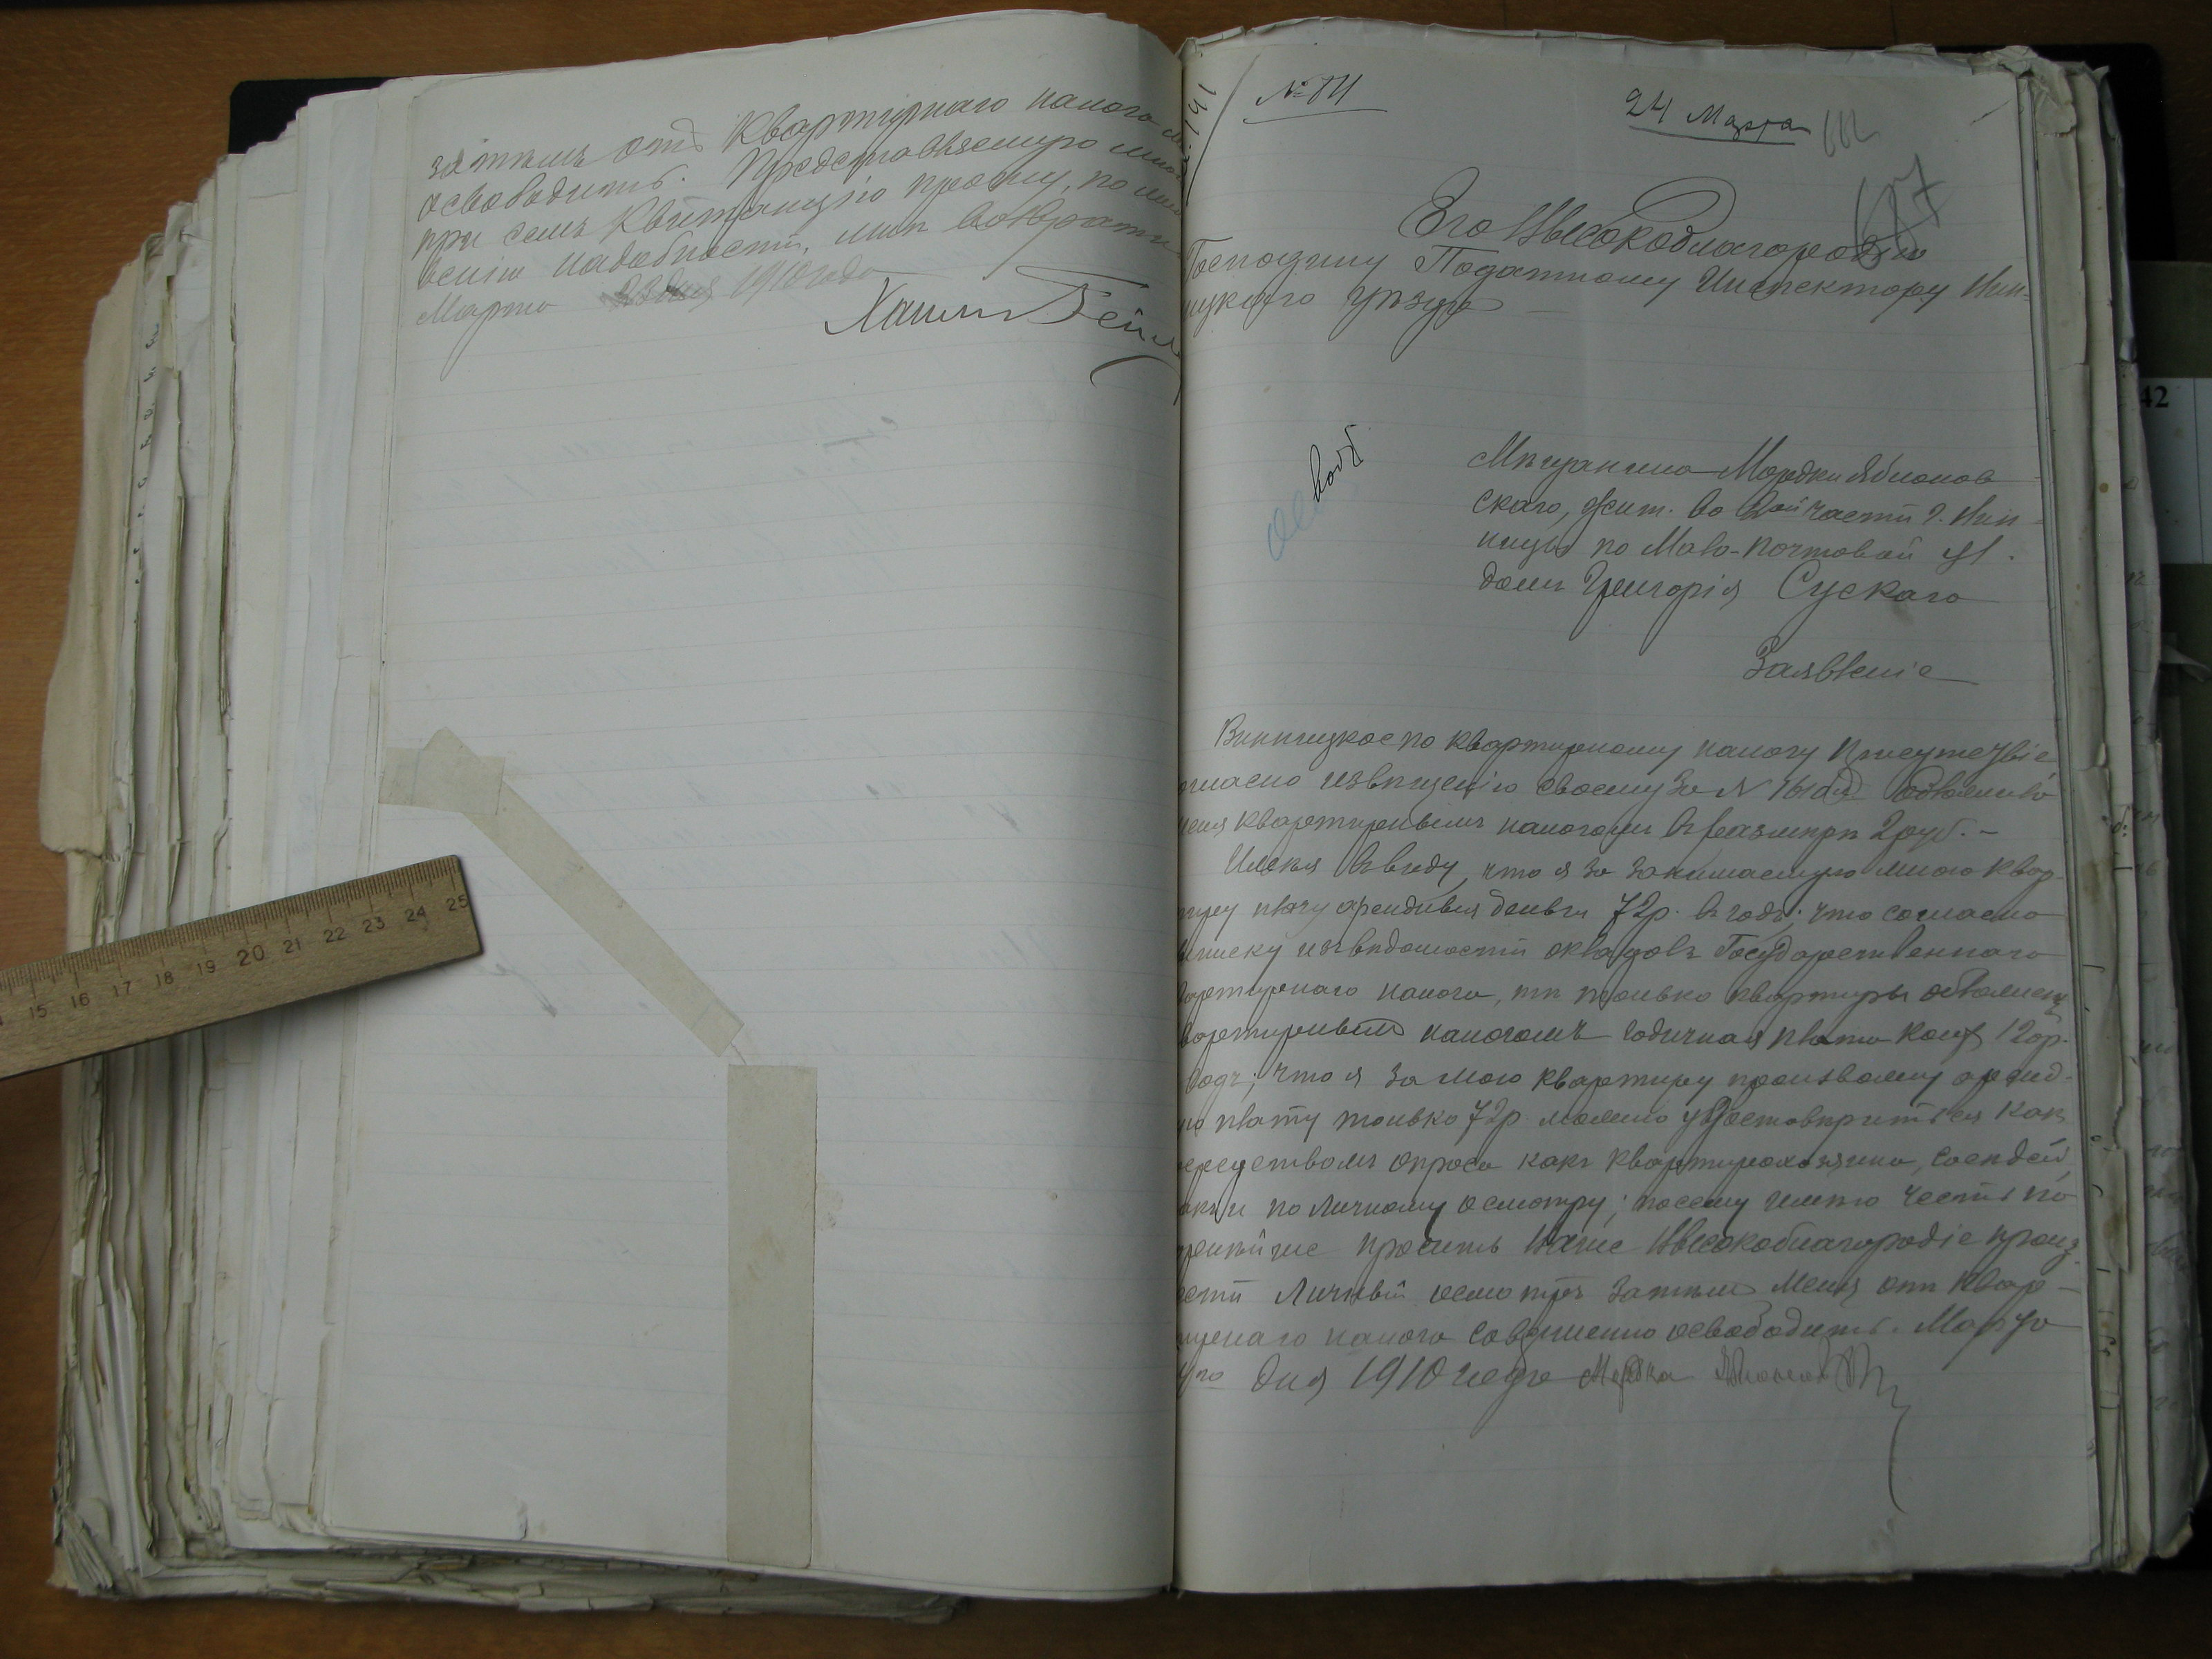 затемъ отъ Квартирнаго налога
освободить. Представляемую мною
при семъ Квитанцію прошу, по
надобности, мнѣ возврати
Марта 23 дня 1910 года
Хаим Бейл
№ 84
24 Марта
112
687
Его Высокоблагородію
Господину Податному Инспектору Вин-
ницкаго уѣзда
освоб
Мѣщанина Мордки Яблонов-
скаго, жит. во 2ой части г. Вин-
ницы по Мало-Почтовой ул.
домъ Григорія Сускаго
Заявленіе
Винницкое по квартирному налогу Присутствіе
огласно извѣщенію своему за № обложило
меня квартирнымъ налогомъ въ размѣрѣ 2 руб. -
Имѣя въ виду, что я за занимаемую мною квар-
тиру плачу арендныя деньги 72р. въ годъ; что согласно
выписку изъ вѣдомости окладовъ Государственнаго
вартирнаго налога, тѣ только квартиры обложены
вартирнымъ налогомъ годичная плата коихъ 120р.
годъ; что я за мою квартиру произвожу аренд-
ю плату только 72р можно удостовѣриться какъ
средствомъ опроса какъ квартирохозяина, сосѣдей,
акъ и по личному осмотру; посему имѣю честь по-
рнѣйше просить Ваше Высокоблагородіе произ-
ести личный осмотръ затемъ меня отъ квар-
тирнаго налога совершенно освободить. Марта
го дня 1910 года Мордка Яблоновскій
42
15 16 17 18 19 20 21 22 23 24 25